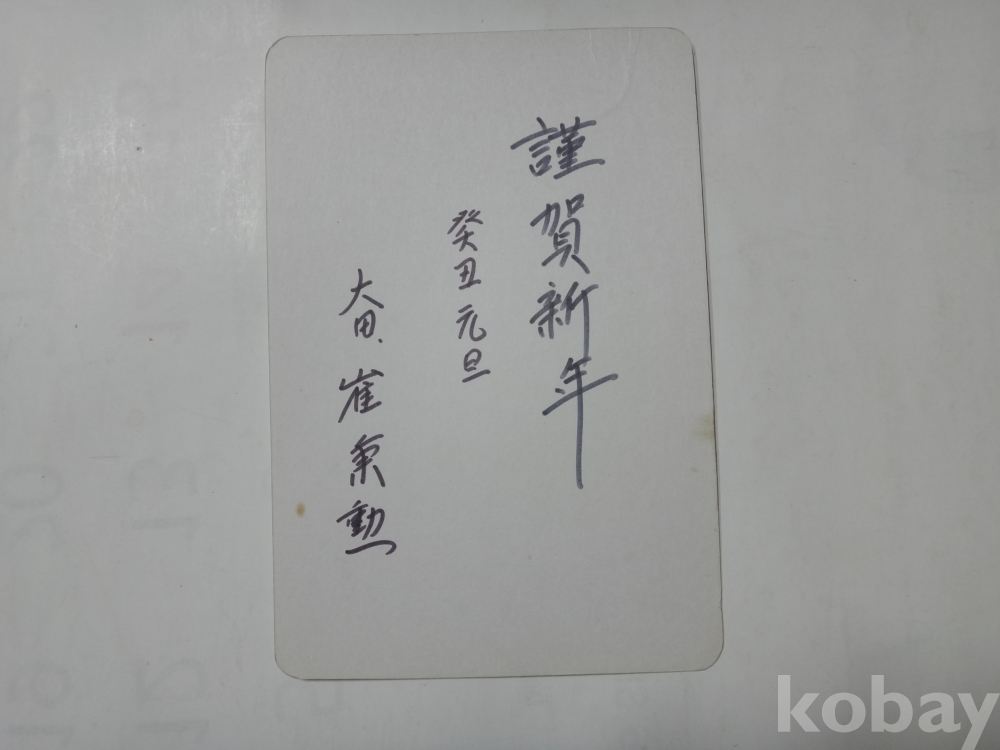 謹賀新年
癸丑元旦
大田、崔秉勳
kobay